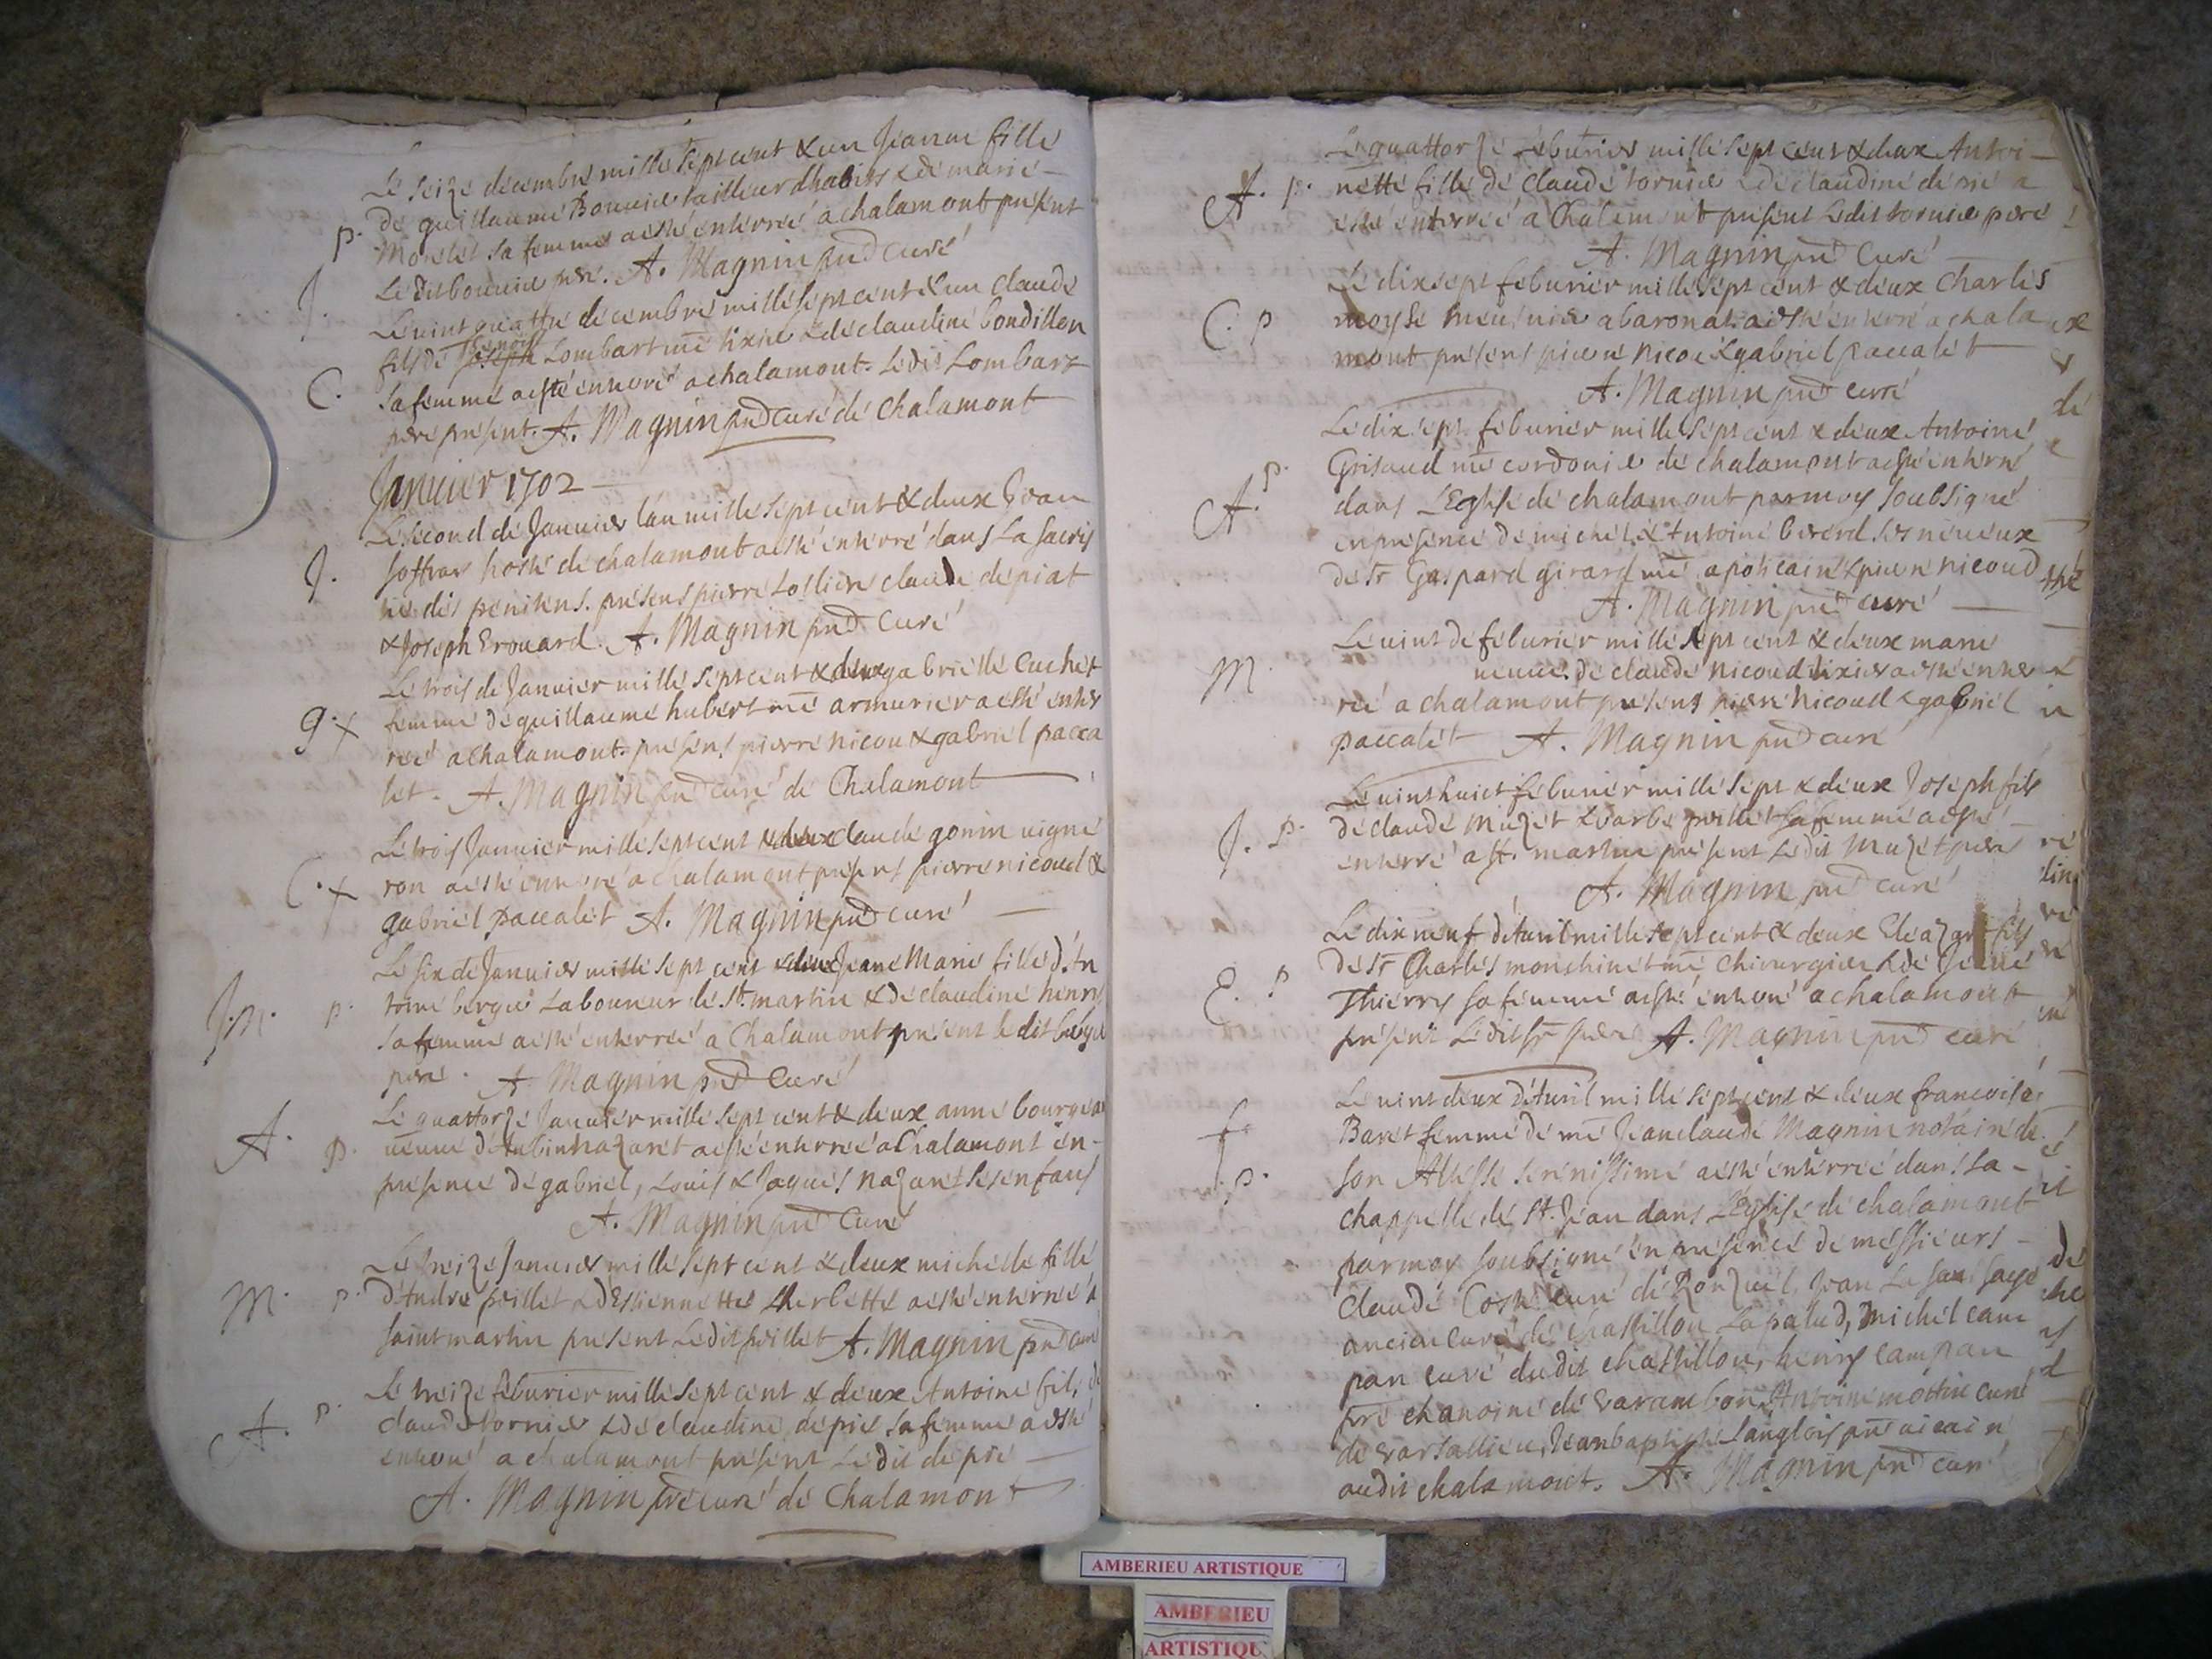 Le seize decembre mille sept cent & un Jeanne fille
de guillaume Bouvier tailleur dhabits & de marie
p. Morelet sa femme a esté enterreé a chalamont present
J. Le dit bouvier pere. A. Magnin pnt curé
Le vint quattre decembre mille sept cent & un claude
benoit
fils de Joseph Lombart me tixier & de claudine bondillon
C. sa femme a esté enterré a chalamont. Le dit Lombart
pere present. A. Magnin pnt curé de chalamont
Janvier 1702
Le second de Janvier lan mille sept cent & deux Jean
J. hosté de chalamont a esté enterré dans La sacris
tie des penitens. presens pierre Lollier claude depiat
& Joseph Erouard. A. Magnin pnt Curé
Le trois de Janvier mille sept cent & deux gabrielle Cuchet
g. + femme de guillaume hubert me armurier a esté enter
reé a chalamont. present pierre nicou & gabriel pacca
let. A. Magnin pnt curé de Chalamont
Le trois Janvier mille sept cent & deux claude gonin vigne
C. + ron a esté enterré a chalamont present pierre nicoud &
gabriel paccalet A. Magnin pnt curé
Le six de Janvier mille sept cent & deux Jeane Marie fille d'An
J.M. p. toine bergie Laboureur de St. martin & de claudine henry
sa femme a esté enterreé a Chalamont present le dit bergie
pere. A. Magnin pnt Curé
Le quattorze Janvier mille sept cent & deux anne bourgeat
A. p. veuve d'Aubin nazaret a esté enterreé a Chalamont en
presence de gabriel, Louis & Jaques nazaret ses enfans
A. Magnin pnt Curé
Le treize Janvier mille sept cent & deux michelle fille
M. p. d'Andre peillet & d'Estiennette Lherbette a esté enterreé a
saint martin present Le dit peillet A. Magnin pnt curé
Le treize feburier mille sept cent & deux Antoine fils de
A. p. claude tornier & de claudine deprie sa femme a esté
enterré a chalamont present Le dit deprie
A. Magnin pre curé de Chalamont
Le quattorze feburier mille sept cent & deux Antoi
A. p. nette fille de claude tornier & de claudine deprie a
esté enterreé a Chalamont present Ledit tornier pere
A. Magnin pnt Curé
Le dixsept feburier mille sept cent & deux Charles
C. p moyse meunier a baronat a esté enterré a chala
mont present pierre nicou & gabriel paccalet
A. Magnin pnt curé
Le dix sept feburier mille sept cent & deux Antoine
p. Grisaud me cordonie de chalamont a esté enterré
A. dans L'Eglise de chalamont par moy soubsigné
en presence de michel & Antoine bererd ses neveux
de sr Gaspard girard me apoticaire & pierre nicoud
A. Magnin pnt curé
Le vint de feburier mille sept cent & deux marie
M. veuve de claude nicoud tixier a esté enter
reé a chalamont present pierre nicoud & gabriel
paccalet A. Magnin pnt curé
Le vint huict feburier mille sept & deux Joseph fils
J. p. de claude Muzet & barbe peillet sa femme a esté
enterré a st. martin present Le dit Muzet pere
A. Magnin pnt curé
Le dix neuf d'Avril mille sept cent & deux Eleazar fils
de sr Charles monchinet me chirurgien & de Jeane
E. p Thierry sa femme a esté enterré a chalamont
present Le dit sr pere A. Magnin pnt curé
Le vint deux d'Avril mille sept cent & deux francoise
f Baret femme de me Jean claude Magnin notaire de
p. son Altesse serenissime a esté enterreé dans La
chappelle de St. Jean dans L'Eglise de chalamont
par moy soubsigné en presence de messieurs
Claude Coste curé de Ronzuel, Jean Le sage
ancien curé de chastillon La palud, michel cam
pan curé dudit chastillon, henry campan
pre chanoine de varambon Antoine curé
de Jean baptiste Langlois pre vicaire
audit chalamont. A. Magnin pnt curé
AMBERIEU ARTISTIQUE
AMBERIEU
ARTISTIQU